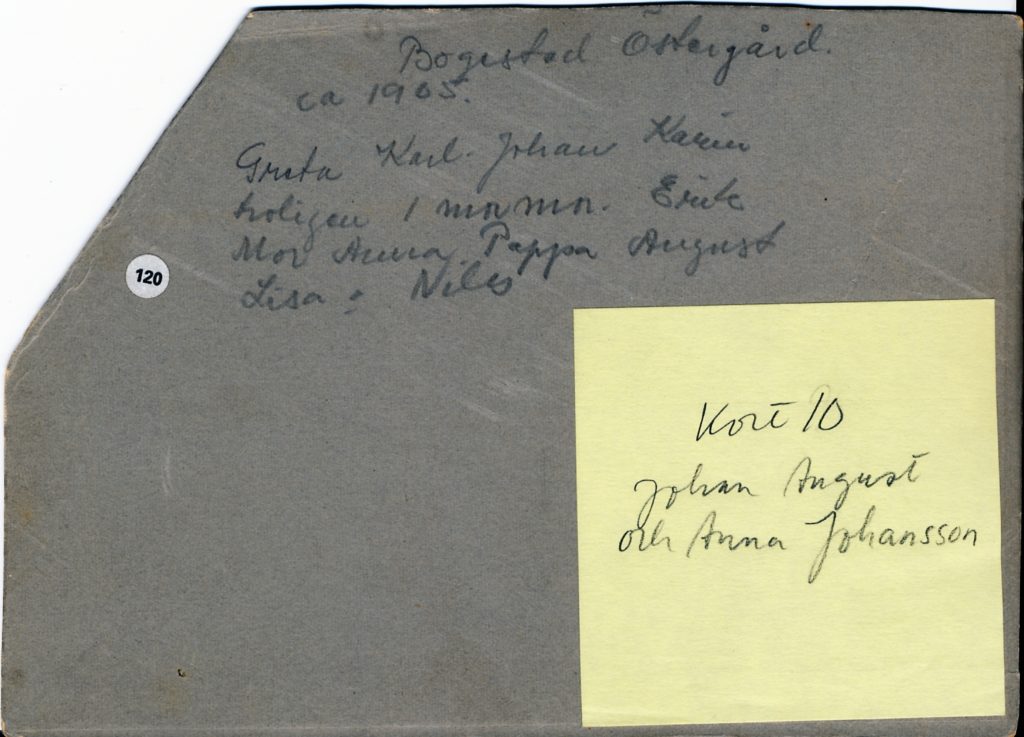 Bogestad Östergård.
ca 1905.
Greta Karl. Johan Karin
troligen 1 mormor. Erik
Mor Anna Pappa August
Lisa o Nils
120
Kort 10
Johan August
och Anna Johansson